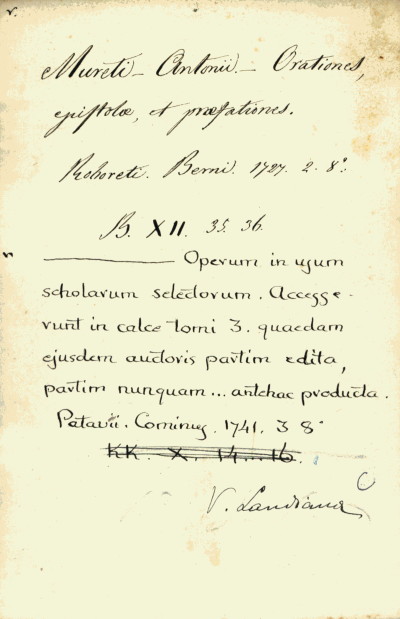 v.
Mureti – Antonii. – Orationes,
epistolæ, et præfationes.
Roboreti. Berni. 1727. 2. 8°.
B. XII. 35. 36.
——— Operum in usum
scholarum selectorum. Accesse-
runt in calce tomi 3. quaedam
ejusdem auctoris partim edita,
partim nunquam... antehac producta.
Patavii. Cominus. 1741. 3 8°
KK. X. 14...16.
V. Landiana
C